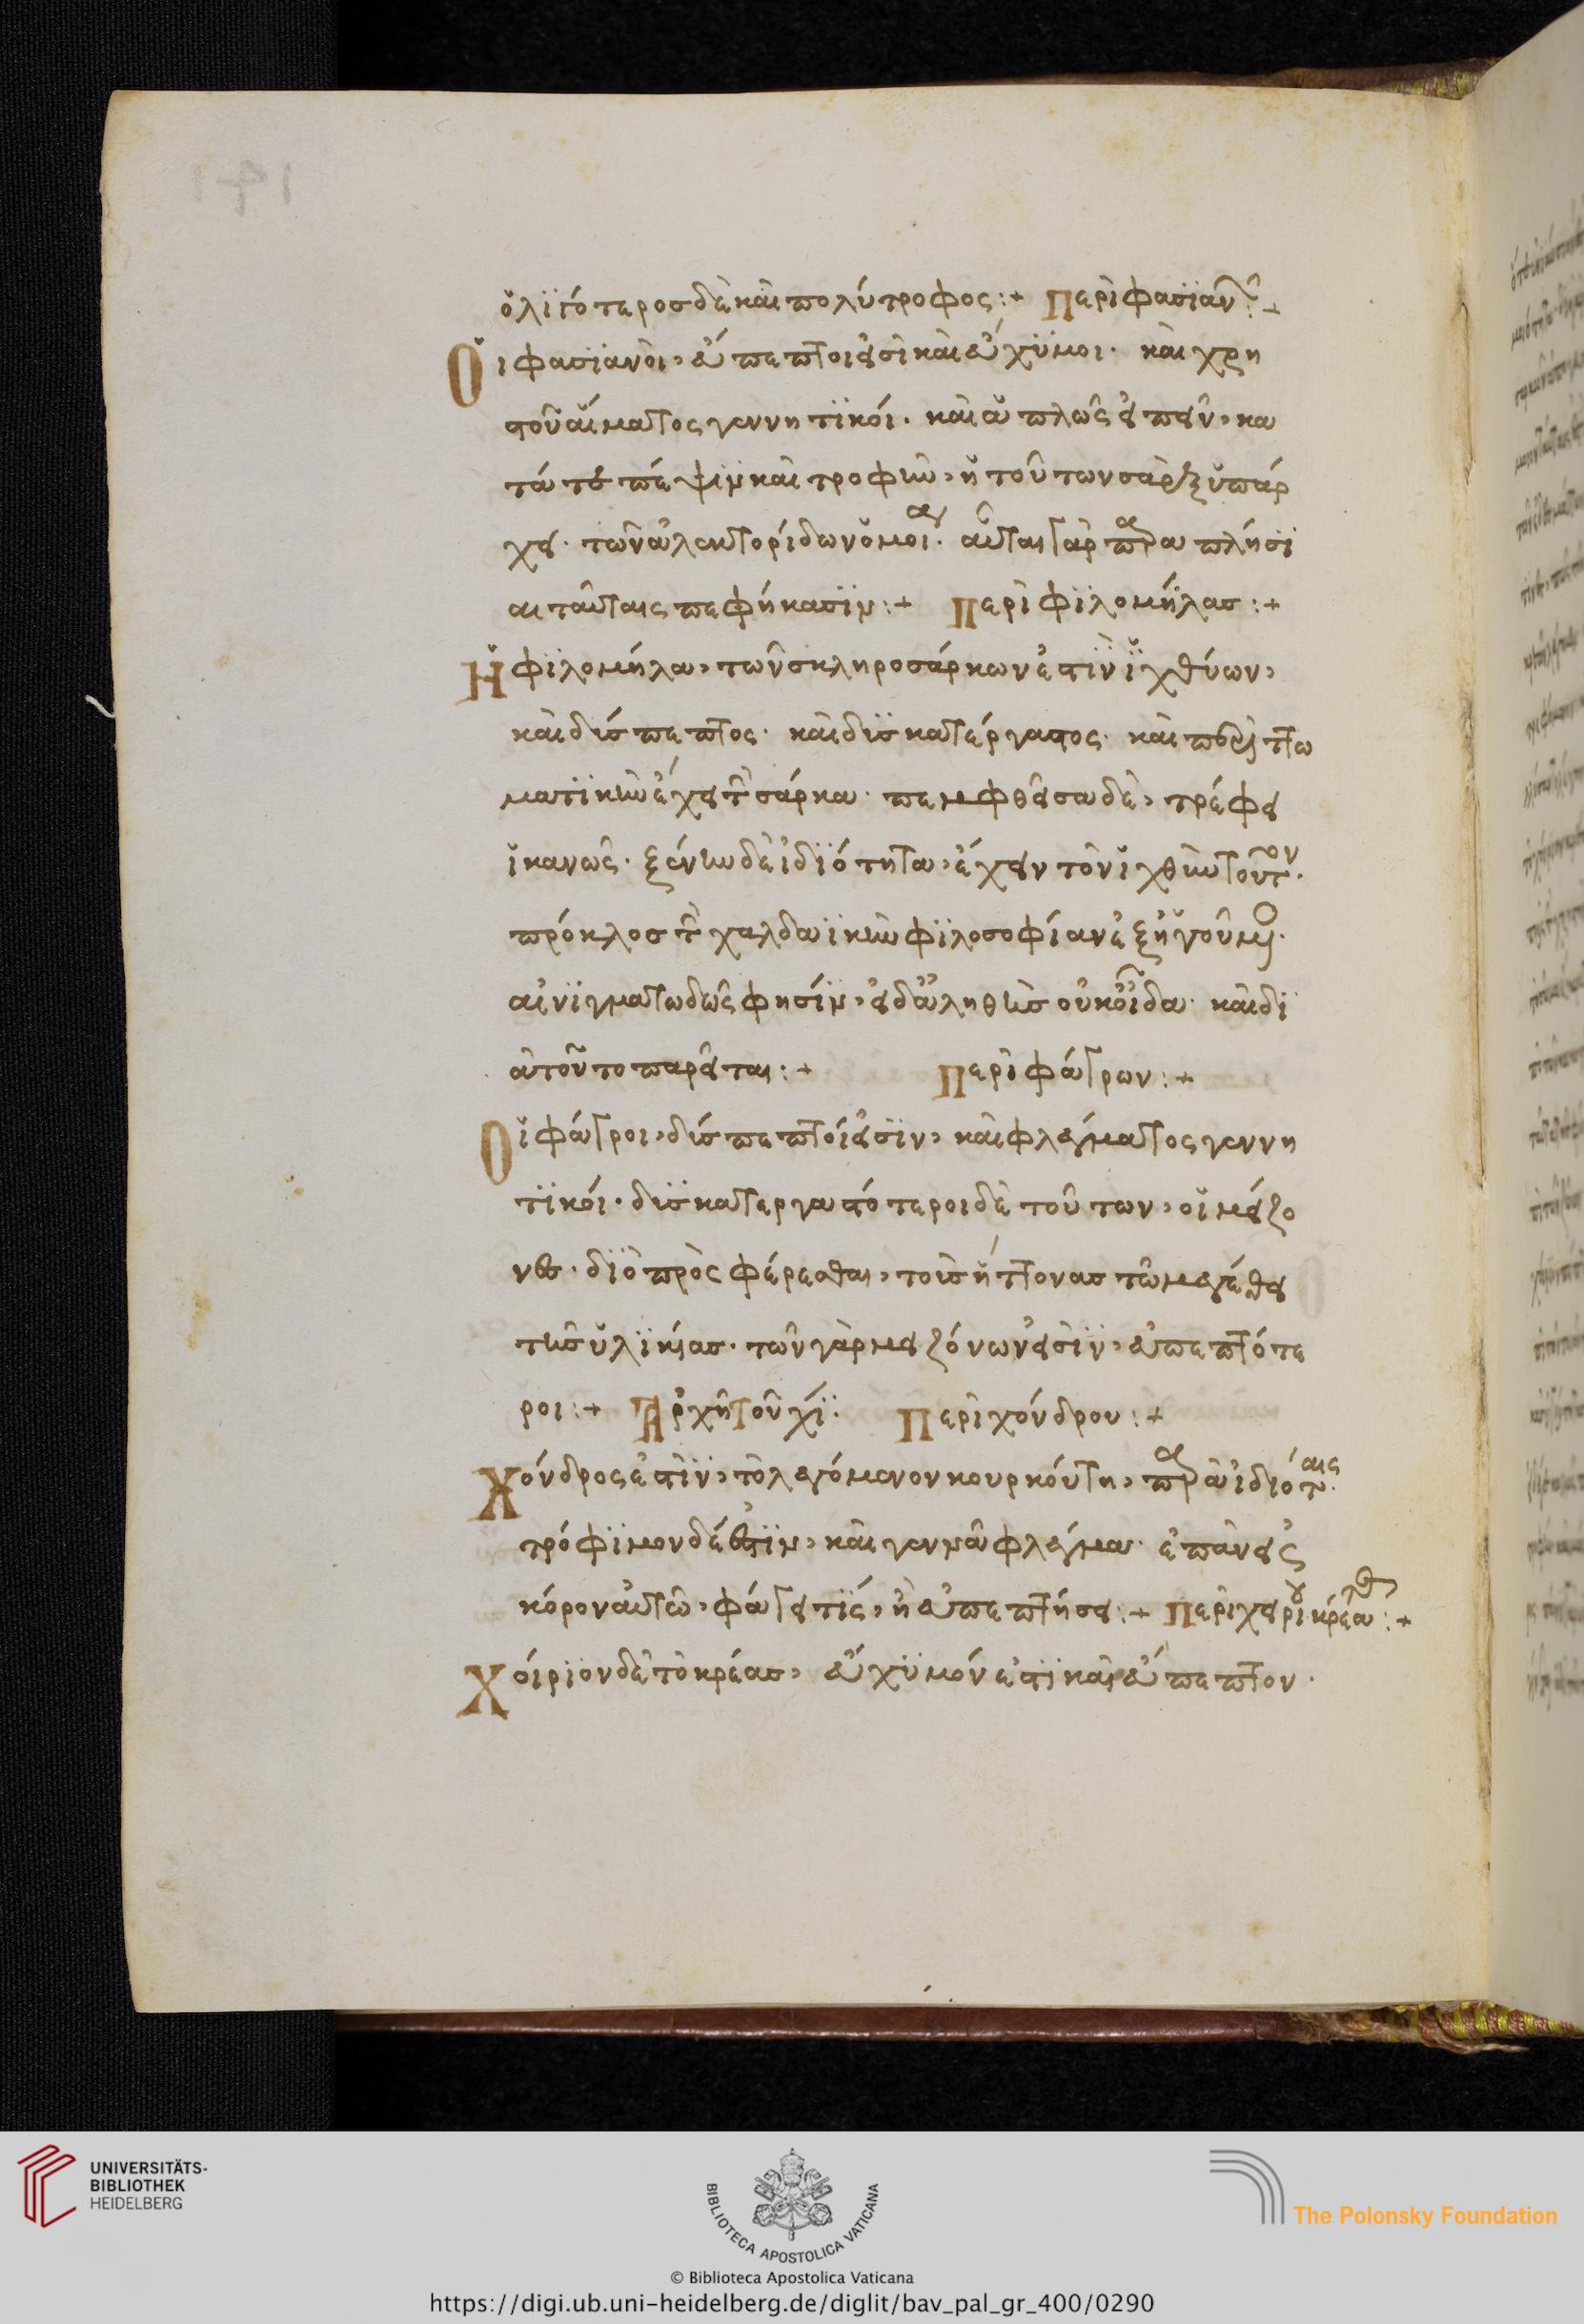 141
ὁλιγότερος δὲ καὶ πολύτροφος :+ Περὶ φασιαν :+
Οἱ φασιανοὶ, εὔπεπτοι εἰσὶ καὶ εὔχυμοι· καὶ χρη
στοῦ αἵματος γεννητικόι. καὶ ἁπλῶς εἰπεῖν, κα
τά τε πέψιν καὶ τροφὴν, ἡ τούτων σὰρξ ὑπάρ
χει· τῶν ἀλεκτορίδων ὅμοι. αὗται γὰρ παραπλήσι
αι ταύταις πεφήκασιν :+ Περὶ φιλομήλας :+
Ἡ φιλομήλα, τῶν σκληροσάρκων ἐστὶν ἰχθύων,
καὶ δύσπεπτος· καὶ δυσκατέργαστος· καὶ περιττω
ματικὴν ἔχει τὴν σάρκα· πεμφθεῖσα δὲ, τρέφει
ἱκανῶς· ξένην δὲ ἰδιότητα, ἔχειν τὸν ἰχθὺν τοῦτον.
πρόκλος τὴν χαλδαϊκὴν φιλοσοφίαν ἐξηγούμενος.
αἰνιγματωδῶς φησίν, εἰ δ' ἀληθὲς οὐκ οἶδα· καὶ δι
ὰ τοῦτο παρεῖται :+ Περὶ φάγρων :+
Οἱ φάγροι, δύσπεπτοί εἰσιν, καὶ φλέγματος γεννη
τικόι· δυσκατεργαστότεροι δὲ τούτων, οἱ μείζο
νες· διὸ προσφέρεσθαι, τοὺς ἥττονας τῶ μεγέθει
τῆς ὑλικίας· τῶν γὰρ μειζόνων εἰσὶν, εὐπεπτότε
ροι :+ Ἀρχὴ τοῦ χῖ: Περὶ χόνδρου :+
Χόνδρος ἐστὶν, τὸ λεγόμενον κουρκούτη, παρὰ ἰδιόταις.
τρόφιμον δέ ἐστιν, καὶ γεννᾶ φλέγμα· ἐπὰν εἰς
κόρον αὐτῶ, φάγει τίς, ἢ εὐπεπτήσει :+ Περὶ χειρι κρέα :+
Χοίριον δὲ τὸ κρέας, εὔχυμόν ἐστι καὶ εὔπεπτον.
UNIVERSITÄTS-
BIBLIOTHEK
HEIDELBERG
BIBLIOTECA APOSTOLICA VATICANA
The Polonsky Foundation
© Biblioteca Apostolica Vaticana
https://digi.ub.uni-heidelberg.de/diglit/bav_pal_gr_400/0290